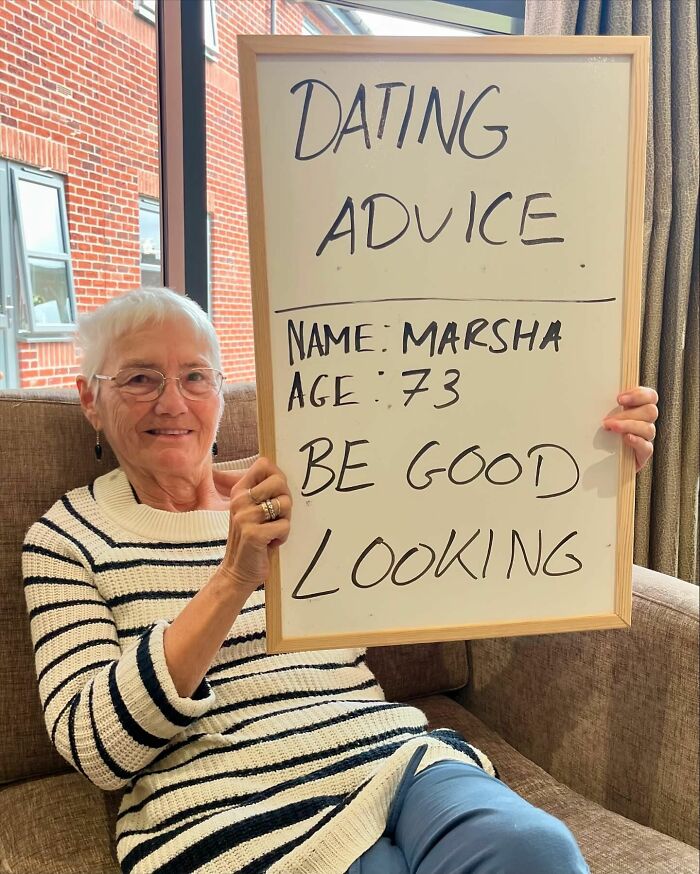 DATING
ADVICE
NAME: MARSHA
AGE: 73
BE GOOD
LOOKING